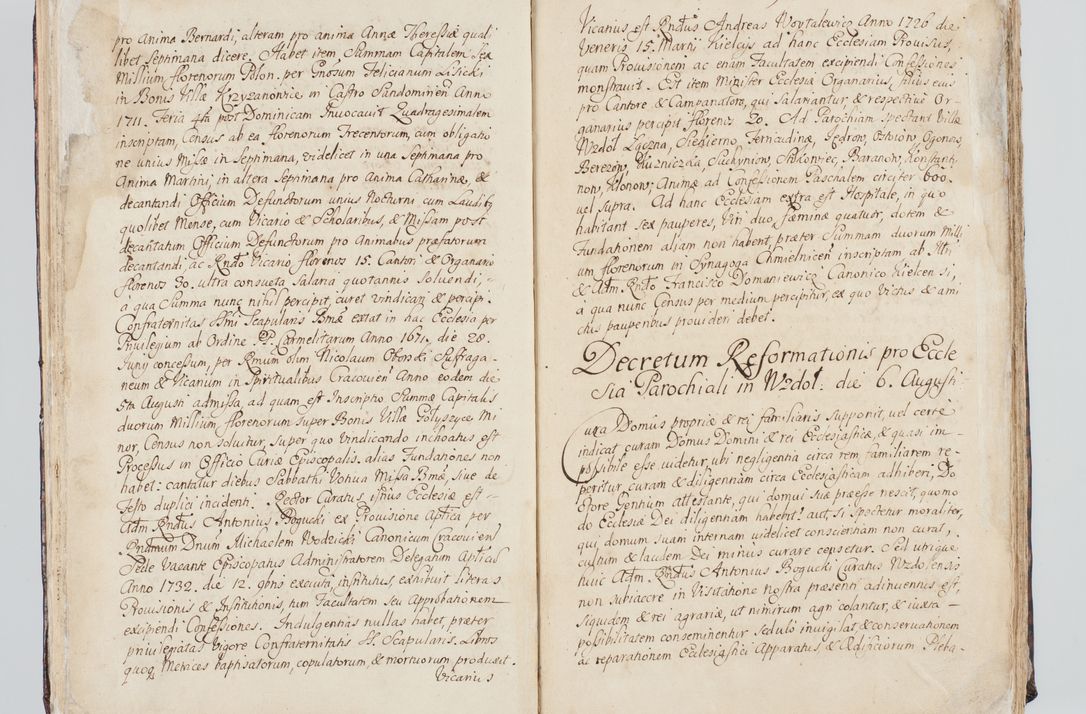 pro Anima Bernardi, alteram pro anima Annæ Theressiæ quali
libet Septimana dicere. Habet item Summam Capitalem Sex
Millium florenorum Polon. per Gnosum Felicianum Lisicki
in Bonis Villæ Krzyzanowice in Castro Sandomirien Anno
1711. Feria 4ta post Dominicam Invocavit Quadragesimalem
inscriptam, Census ab ea florenorum Trecentorum, cum obligatio
ne unius Missæ in Septimana, videlicet in una Septimana pro
Anima Martini, in altera Septimana pro Anima Catharinæ, &
decantandi Officium Defunctorum unius Nocturni cum Laudibg
quolibet Mense, cum Vicario & Scholaribus, & Missam post
decantatum Officium Defunctorum pro Animabus præfatorum
decantandi, ac Rndo Vicario florenos 15. Cantori & Organario
florenos 30. ultra consueta Salaria quotannis Solvendi,
a qua Summa nunc nihil percipit, curet vindicari & percipi.
Confraternitas SSmi Scapularis Bmæ extat in hac Ecclesia per
Privilegium ab Ordine PP. Carmelitarum Anno 1671. die 28.
Junij concessum, per Rmum olim Nicolaum Oborski Suffraga-
neum & Vicarium in Spiritualibus Cracovien Anno eodem die
5ta Augusti admissa, ad quam est Inscriptio Summæ Capitalis
duorum Millium florenorum super Bonis Villæ Polyszyce Mi
nor, Census non solvitur, super quo vindicando inchoatus est
Processus in Officio Curiæ Episcopalis. alias Fundationes non
habet: cantatur diebus Sabbathi Votiva Missa Bmæ, sive de
festo duplici incidenti. Rector Curatus istius Ecclesiæ est
Adm. Rndus Antonius Bogucki ex Provisione Aptica per
Rndmum Dnum Michaelem Wodzicki Canonicum Cracovien
Sede Vacante Episcopatus Administratorem Delegatum Aptlcæ
Anno 1732. die 12. 9bris executa, institutus, exhibuit literas
Provisionis & Institutionis, tum Facultatem seu Approbationem
excipiendi Confessiones. Indulgentias nullas habet, præter
privilegiatas vigore Confraternitatis SS. Scapularis. Libros
quoq Metrices baptisatorum, copulatorum, & mortuorum produxit.
Vicarius
Vicarius est Rndus Andreas Woytalewicz Anno 1726 die
Veneris 15. Martij Kielcys ad hanc Ecclesiam Provisus,
quam Provisionem ac etiam Facultatem excipiendi Confessiones
monstravit. Est item Minister Ecclesiæ Organarius, filius eius
pro Cantore & Campanatore, qui Salariantur, & respective Or-
ganarius percipit florenos 20. Ad Parochiam Spectant Villæ
Wzdol Lączna, Siekierno, Ferniudina, Jędrow, Ostoiow, Ogonow
Berezow, Kuzniczka, Suchyniow, Sitkowiec, Baranow, Konstanti
now, Klonow; Animæ ad Confessionem Paschalem circiter 600.
vel supra. Ad hanc Ecclesiam extra est Hospitale, in quo
habitant sex pauperes, Viri duo, fæminæ quatuor, dotem &
Fundationem aliam non habent, præter Summam duorum Milli
um florenorum in Synagoga Chmielnicen inscriptam, ab Illri
& Adm. Rndo Francisco Domaniewicz Canonico Kielcensi,
a qua nunc Census per medium percipitur, ex quo Victus & ami
ctus pauperibus provideri debet.
Decretum Reformationis pro Eccle
sia Parochiali in Wzdol: die 6. Augusti
Cura Domus propriæ & rei familiaris supponit, vel certe
indicat curam Domus Domini & rei Ecclesiasticæ, & quasi im-
possibile esse videtur, ubi negligentia circa rem familiarem re-
peritur, curam & diligentiam circa Ecclesiasticam adhiberi, Do
ctore Gentium attestante, qui domui suæ præesse nescit, quomo
do Ecclesiæ Dei diligentiam habebit? aut, si spectetur moraliter,
qui domum suam internam videlicet conscientiam non curat,
cultum & laudem Dei minus curare censetur. Sed utrique
huic Adm. Rndus Antonius Bogucki Curatus Wzdolensis
non subiacere in Visitatione nostra præsenti adinventus est,
siquidem & rei agrariæ, ut nimirum agri colantur, & iuxta
possibilitatem conseminentur sedulo invigilat, & conservationem
ac reparationem Ecclesiastici Apparatus & Ædificiorum Pleba-